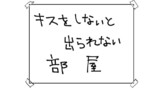 キスをしないと
出られない
部屋